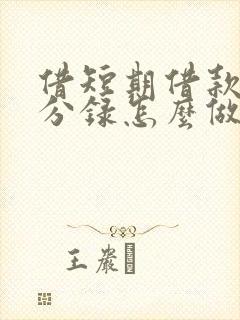 借短期借款
分錄怎麼做
王嚴